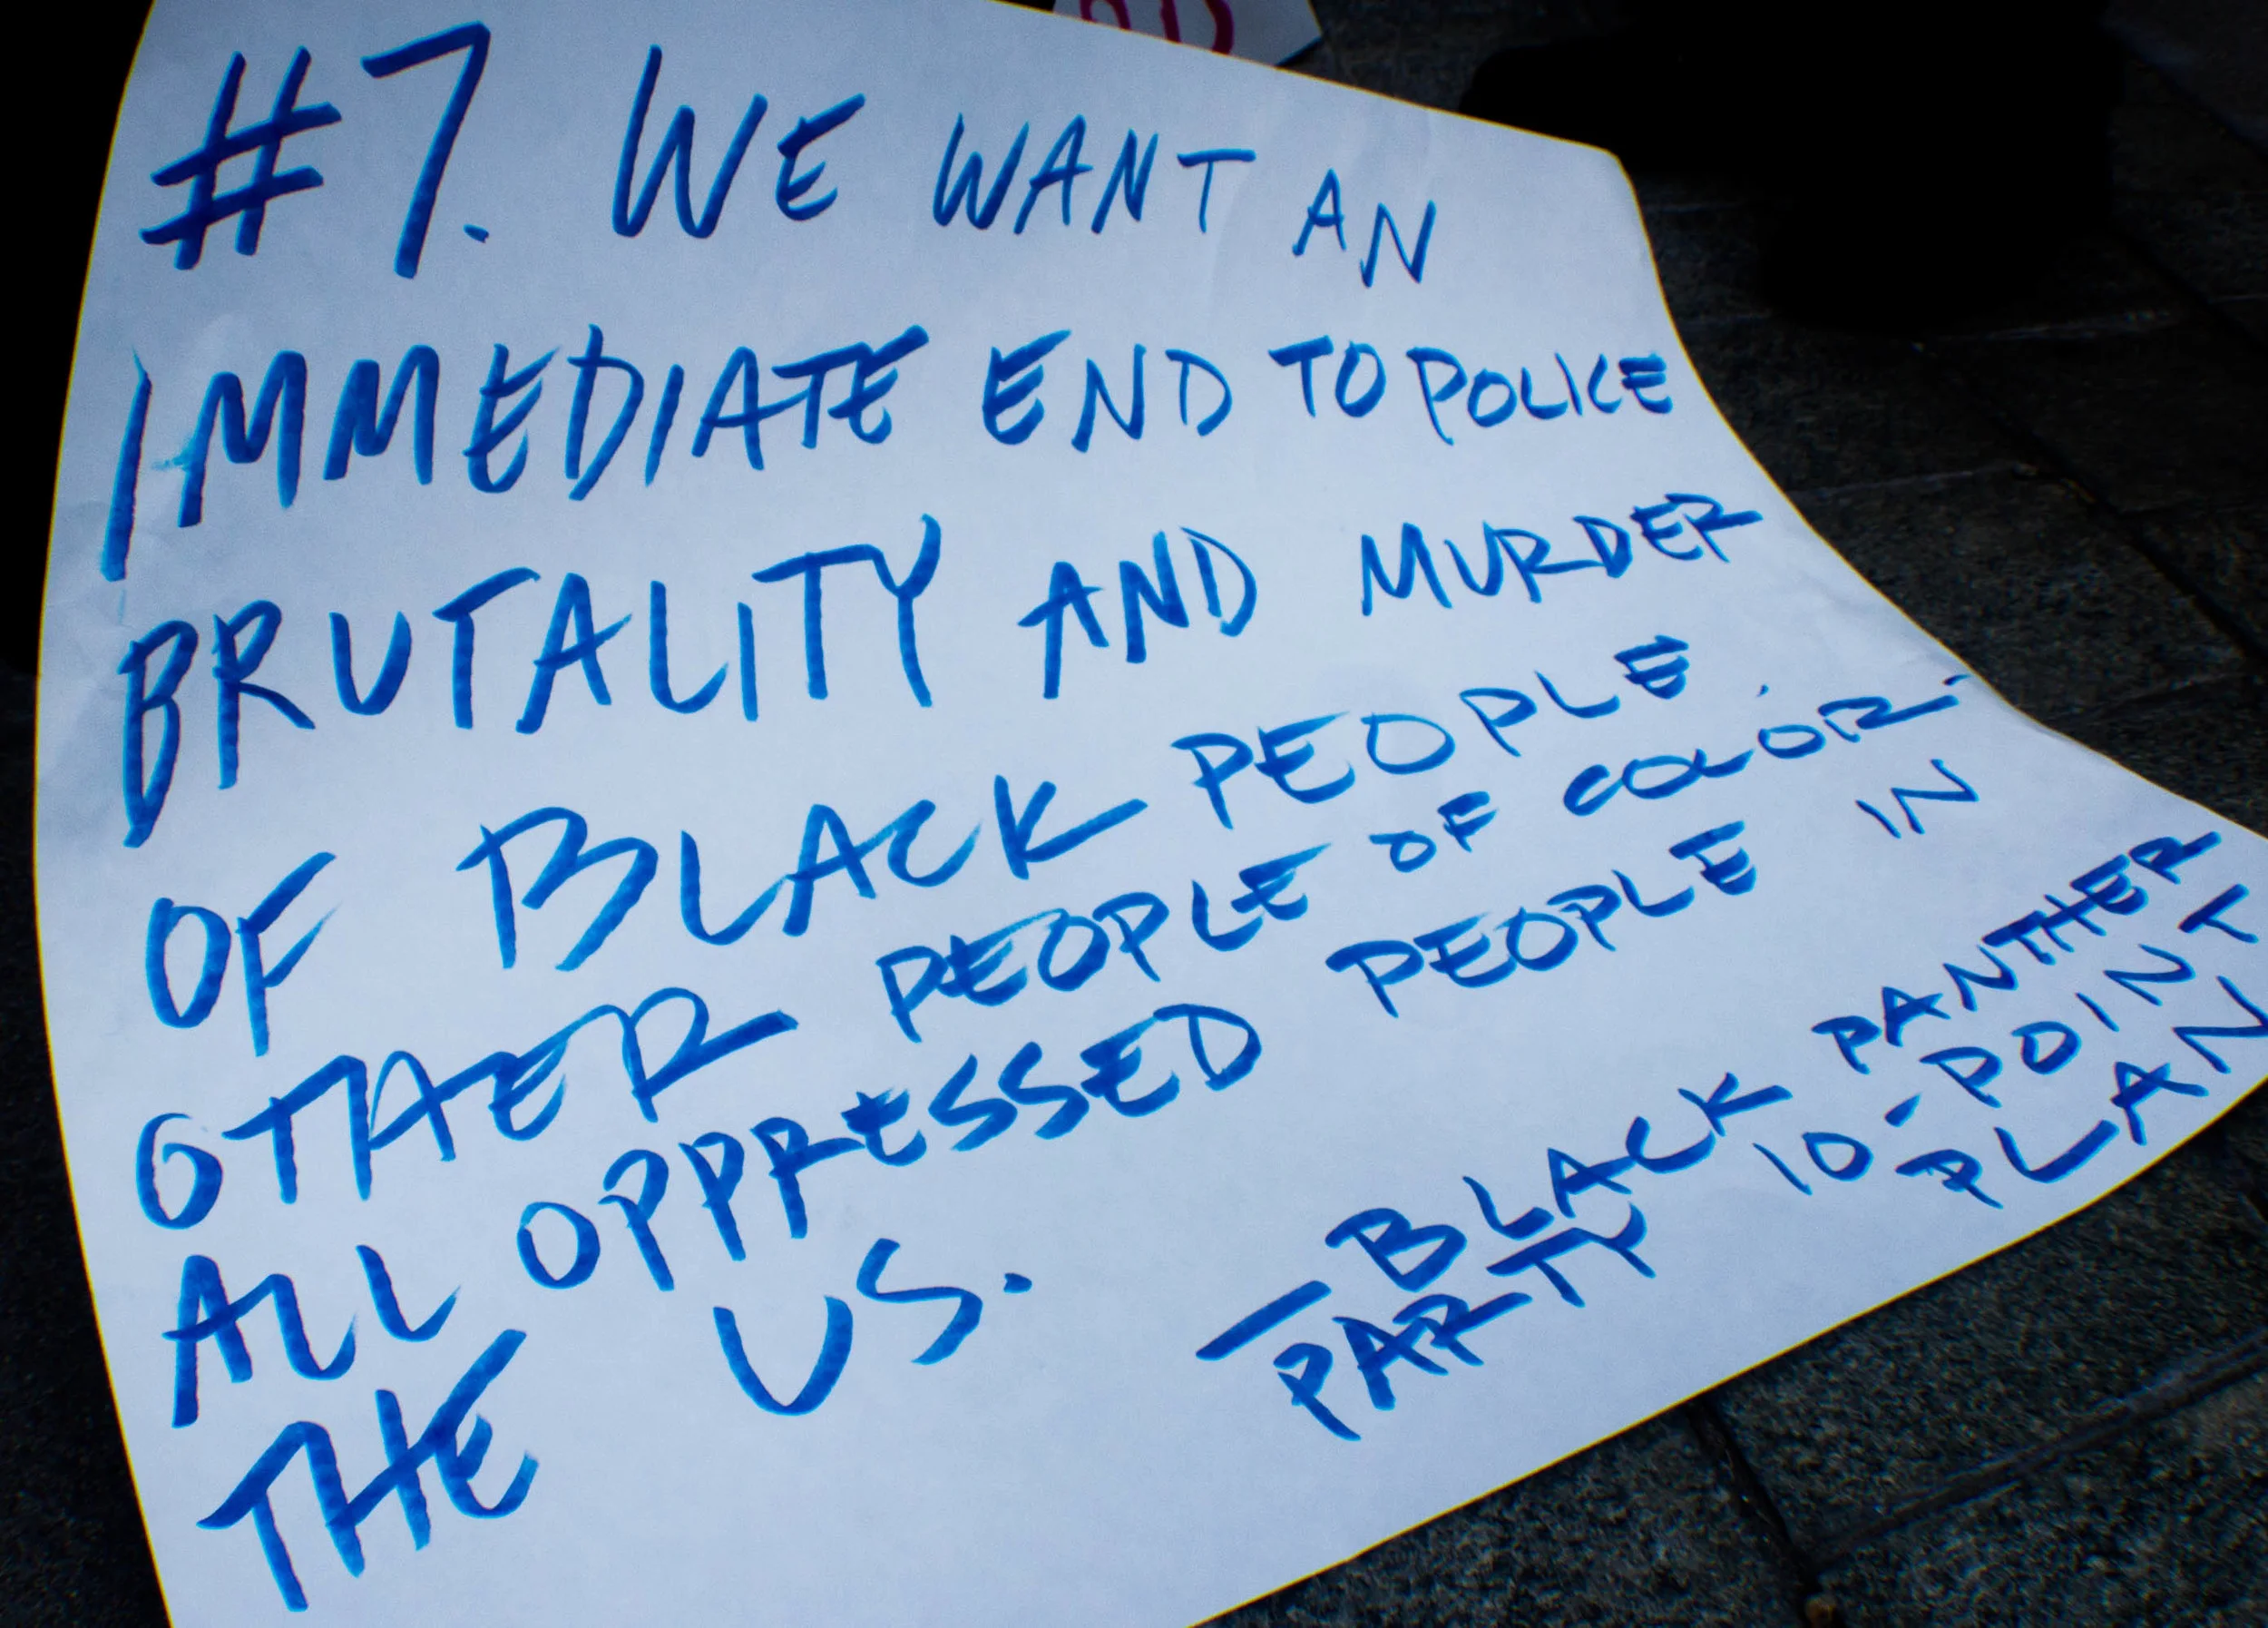 #7. WE WANT AN
IMMEDIATE END TO POLICE
BRUTALITY AND MURDER
OF BLACK PEOPLE,
OTHER PEOPLE OF COLOR,
ALL OPPRESSED PEOPLE IN
THE US.
- BLACK PANTHER
PARTY 10-POINT
PLAN